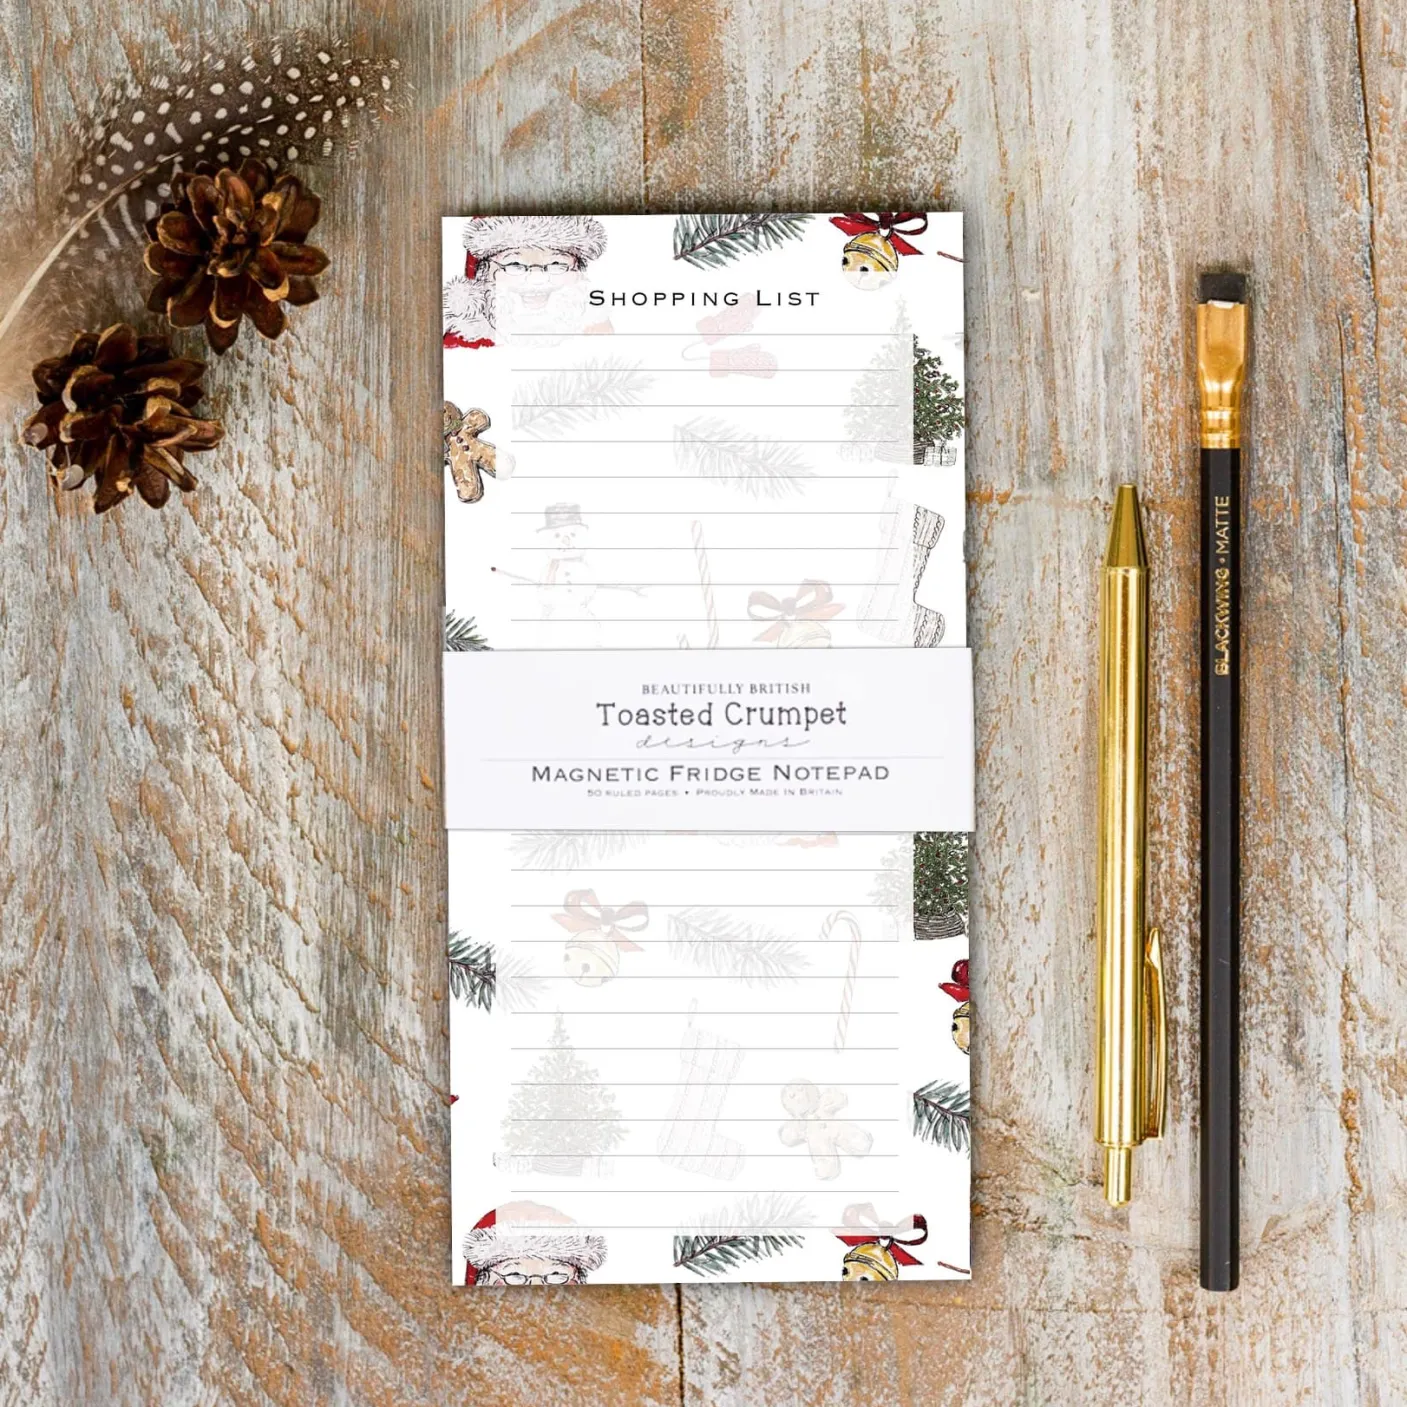 SHOPPING LIST
BEAUTIFULLY BRITISH
Toasted Crumpet
designs
MAGNETIC FRIDGE NOTEPAD
50 RULED PAGES • PROUDLY MADE IN BRITAIN
BLACKWING • MATTE